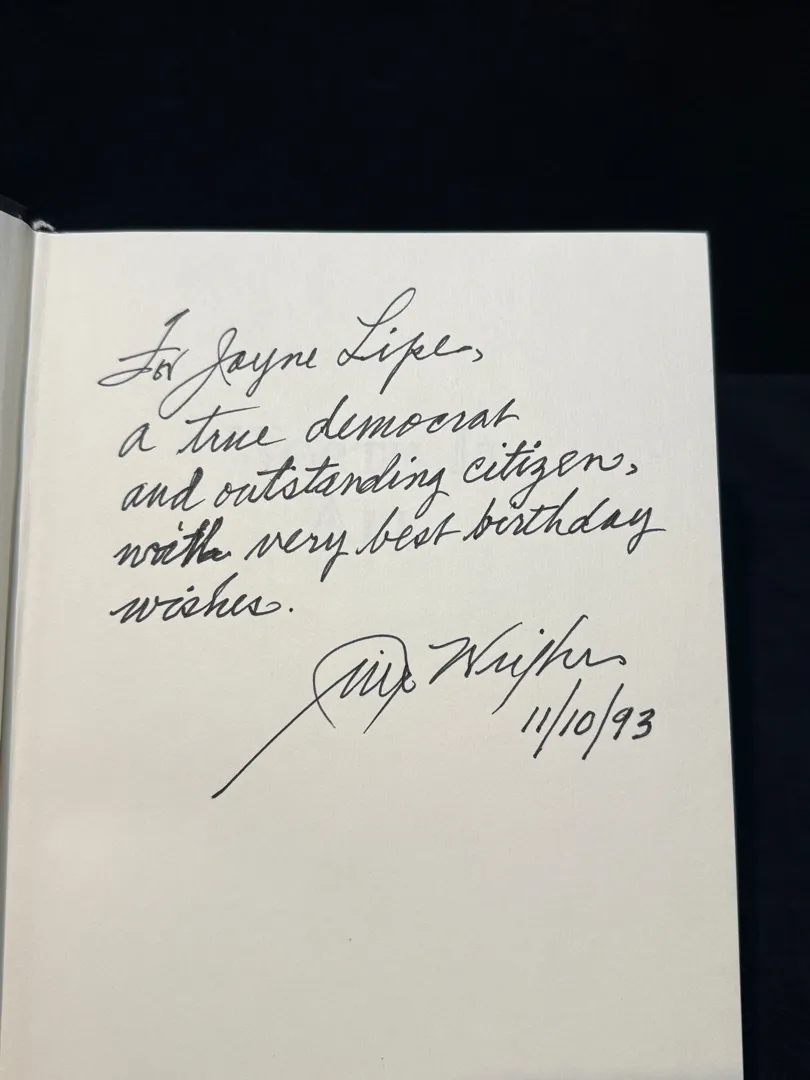 For Jayne Lipe,
a true democrat
and outstanding citizen,
with very best birthday
wishes.
Jim Wright
11/10/93